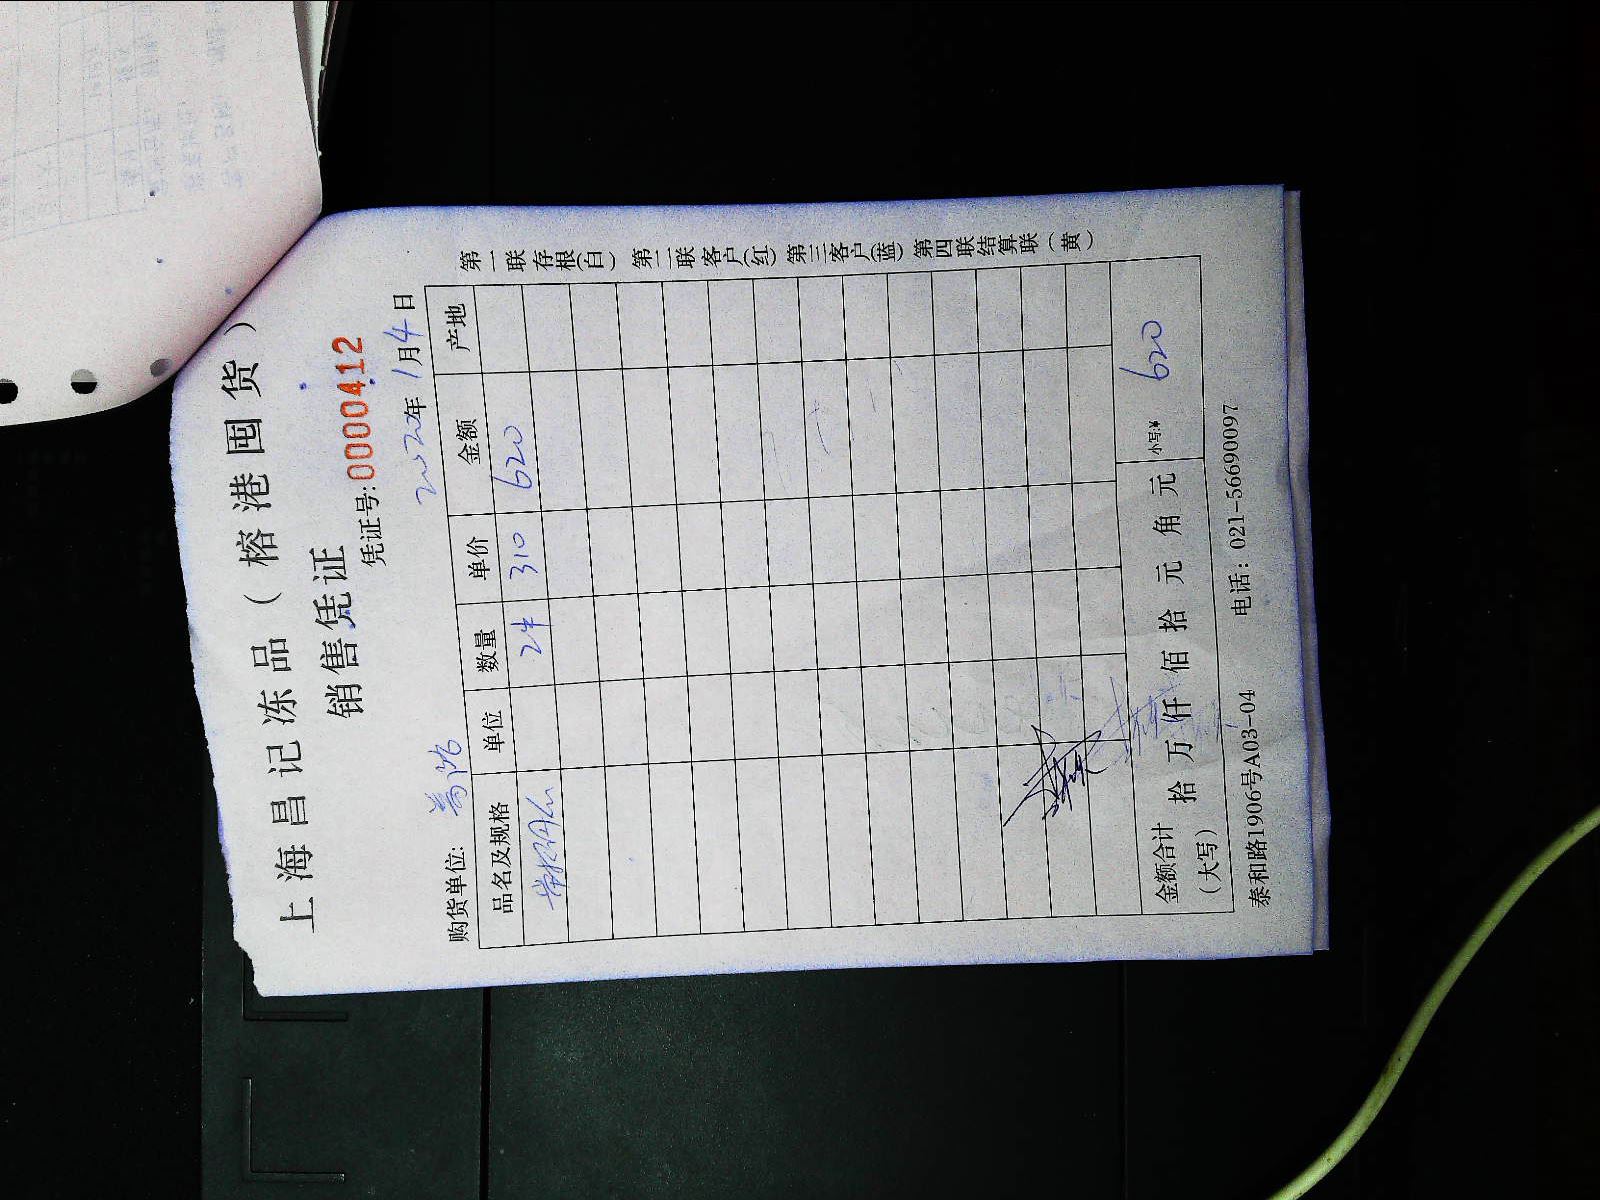 上海昌记冻品（榕港囤货）
销售凭证
凭证号:0000412
2020年1月4日
购货单位:
品名及规格 单位 数量 单价 金额 产地
2件 310 620
金额合计（大写） 拾 万 仟 佰 拾 元 角 元 小写:¥ 620
泰和路1906号A03-04 电话：021-56690097
第一联存根(白) 第二联客户(红) 第三客户(蓝) 第四联结算联(黄)